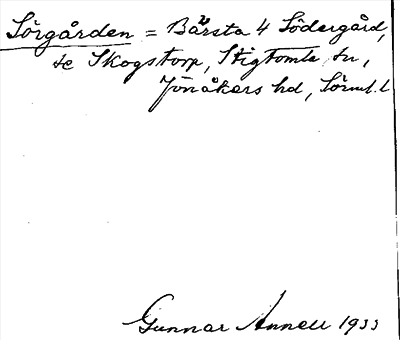 Sörgården = Bärsta 4 Södergård,
se Skogstorp, Stigtomta sn,
Jönåkers hd, Sörml. l.
Gunnar Annell 1933